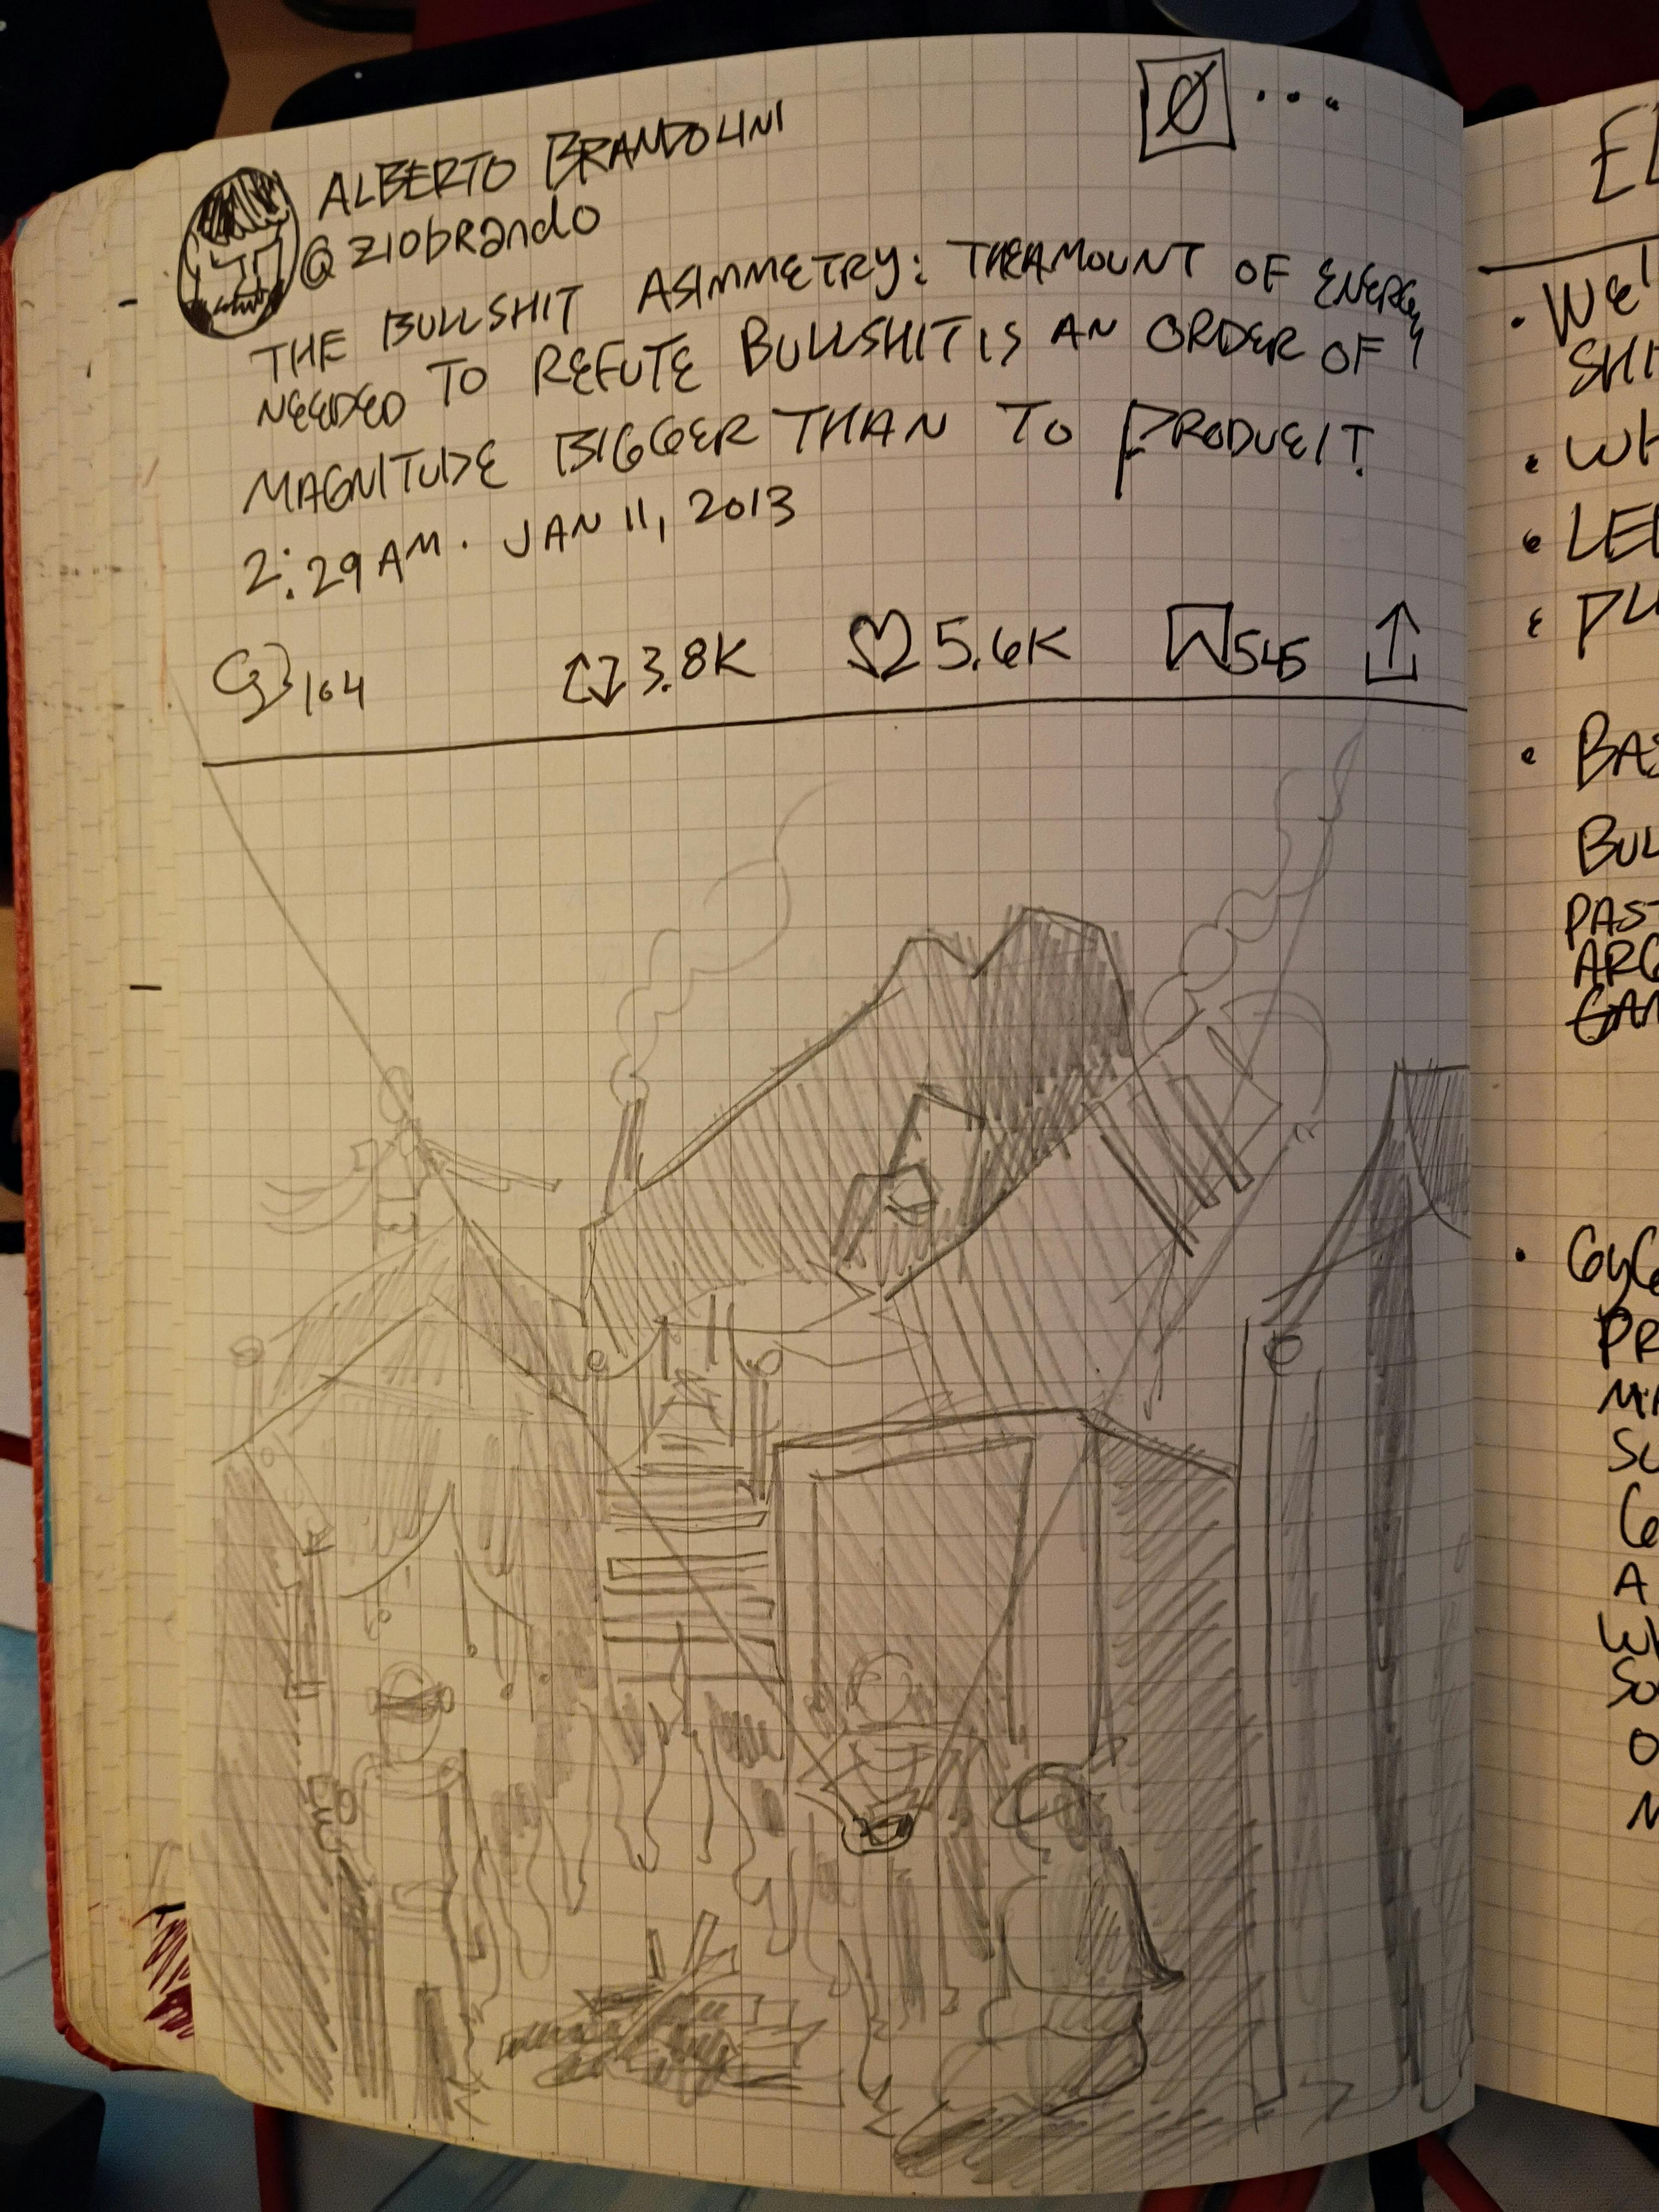 Ø ...
ALBERTO BRANDOLINI
@ziobrando
THE BULLSHIT ASIMMETRY: THE AMOUNT OF ENERGY
NEEDED TO REFUTE BULLSHIT IS AN ORDER OF
MAGNITUDE BIGGER THAN TO PRODUE IT.
2:29 AM · JAN 11, 2013
104 3.8K 5.6K 545
EL
• WE'
SHI
• WH
• LE
• PL
• BAS
BUL
PAST
ARG
GAM
• GYG
PR
MA
SU
A
WH
SO
O
M